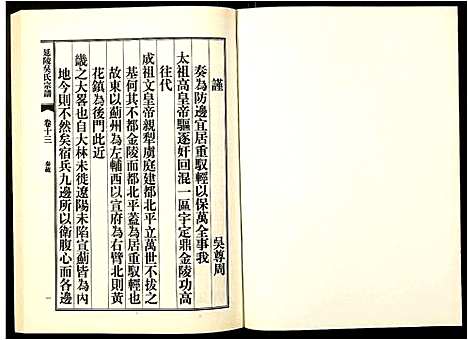 謹
吳尊周
奏為防邊宜居重馭輕以保萬全事我
太祖高皇帝驅逐奸回混一區宇定鼎金陵功高
往代
成祖文皇帝親犁虜庭建都北平立萬世不拔之
基何其不都金陵而都北平蓋為居重馭輕
故東以薊州為左輔西以宣府為右臂北則黃
花鎮為後門此近
畿之大畧也自大林未徙遼陽未陷宣薊皆為內
地今則不然矣宿兵九邊所以衛腹心而各邊
延陵吳氏宗譜
卷十三
奏疏
一